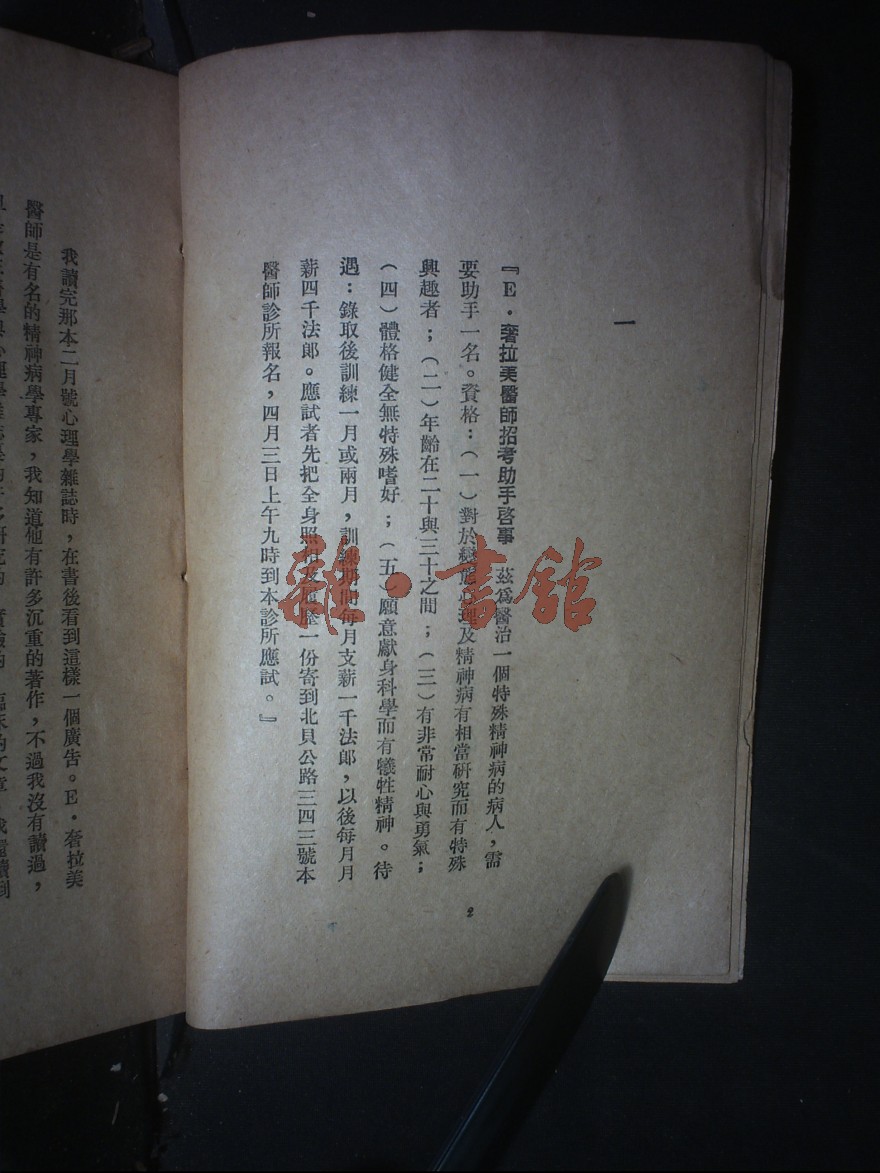 一
『E．奢拉美醫師招考助手啓事　茲爲醫治一個特殊精神病的病人，需
要助手一名。資格：（一）對於變態心理及精神病有相當研究而有特殊
興趣者；（二）年齡在二十與三十之間；（三）有非常耐心與勇氣；
（四）體格健全無特殊嗜好；（五）願意獻身科學而有犧牲精神。待
遇：錄取後訓練一月或兩月，訓練期間每月支薪一千法郎，以後每月月
薪四千法郎。應試者先把全身照相及履歷一份寄到北貝公路三四三號本
醫師診所報名，四月三日上午九時到本診所應試。』
2
我讀完那本二月號心理學雜誌時，在書後看到這樣一個廣告。E．奢拉美
醫師是有名的精神病學專家，我知道他有許多沉重的著作，不過我沒有讀過，
雜·書館